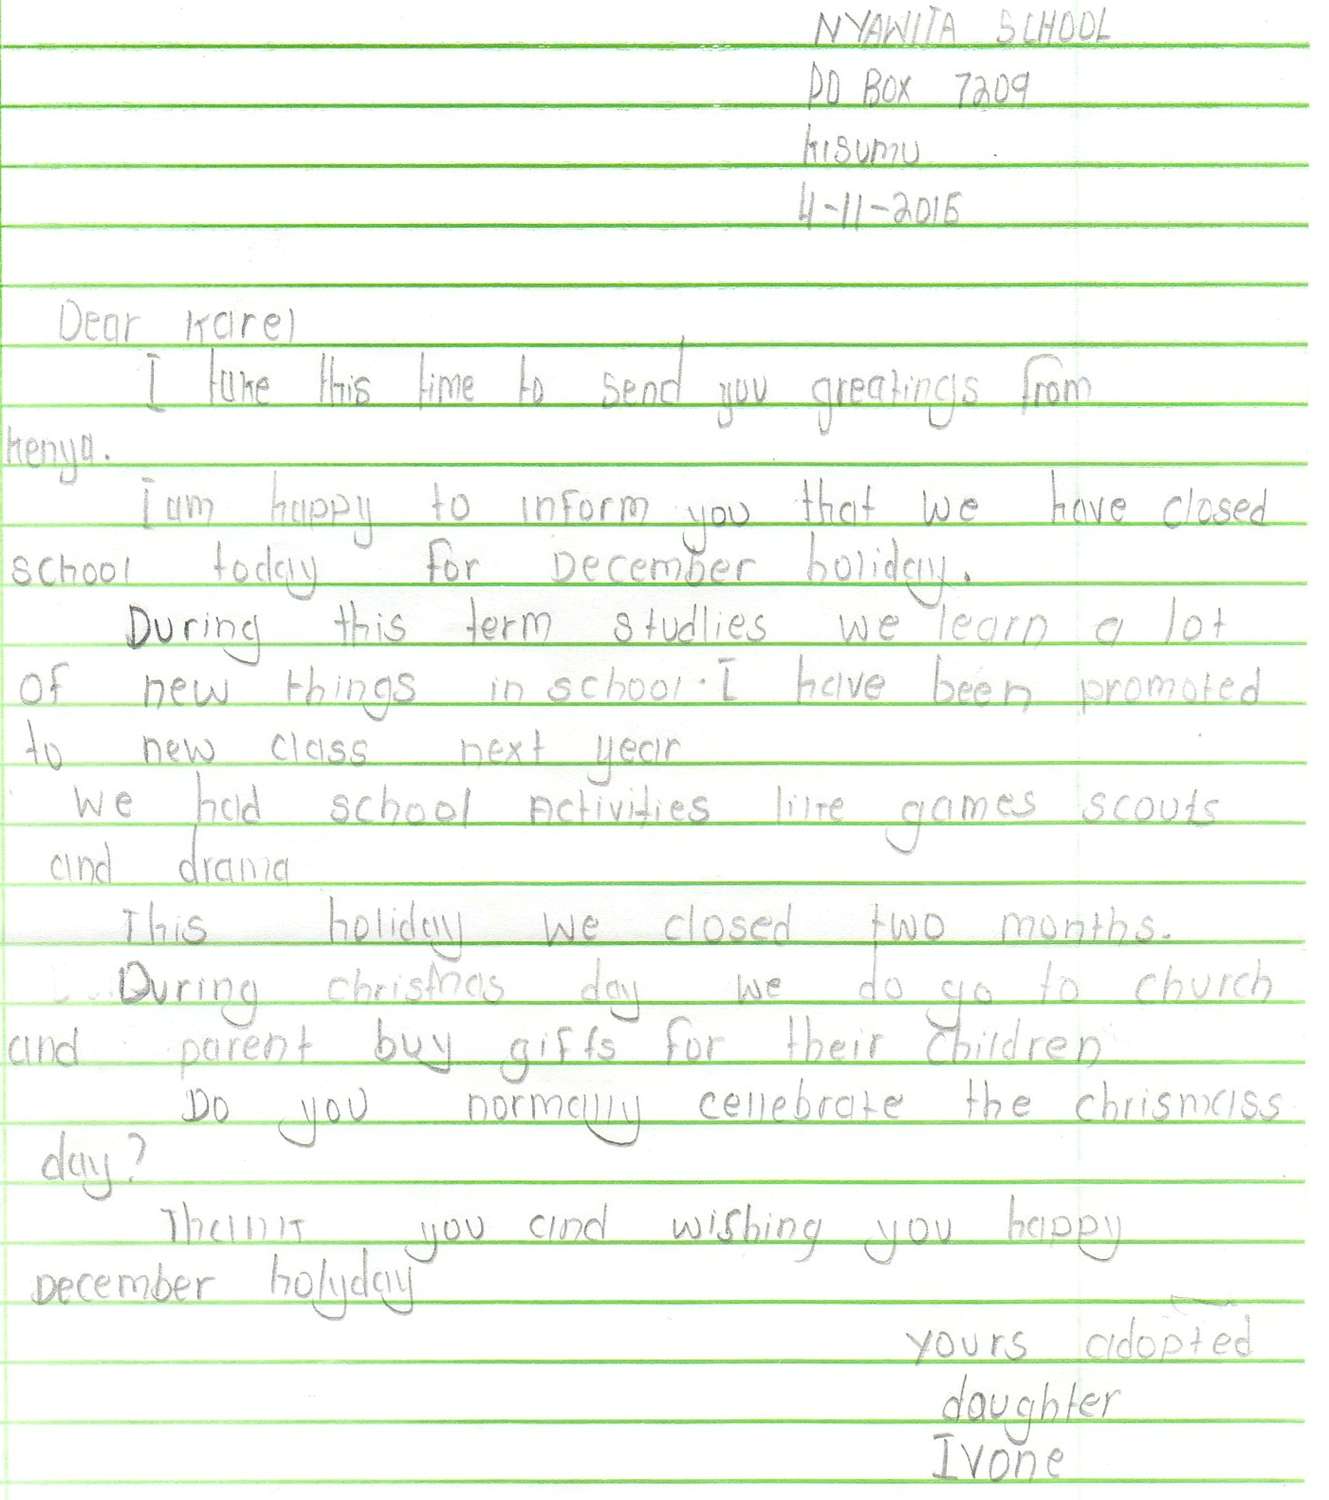 NYAWITA SCHOOL
PO BOX 7209
kisumu
4-11-2016
Dear Karel
I take this time to send you greatings from
kenya.
I am happy to inform you that we have closed
school today for December holiday.
During this term studies we learn a lot
of new things in school. I have been promoted
to new class next year
we had school Activities like games scouts
and drama
This holiday we closed two months.
During christmas day we do go to church
and parent buy gifts for their children
Do you normally cellebrate the chrismass
day?
Thank you and wishing you happy
December holyday
yours adopted
daughter
Ivone